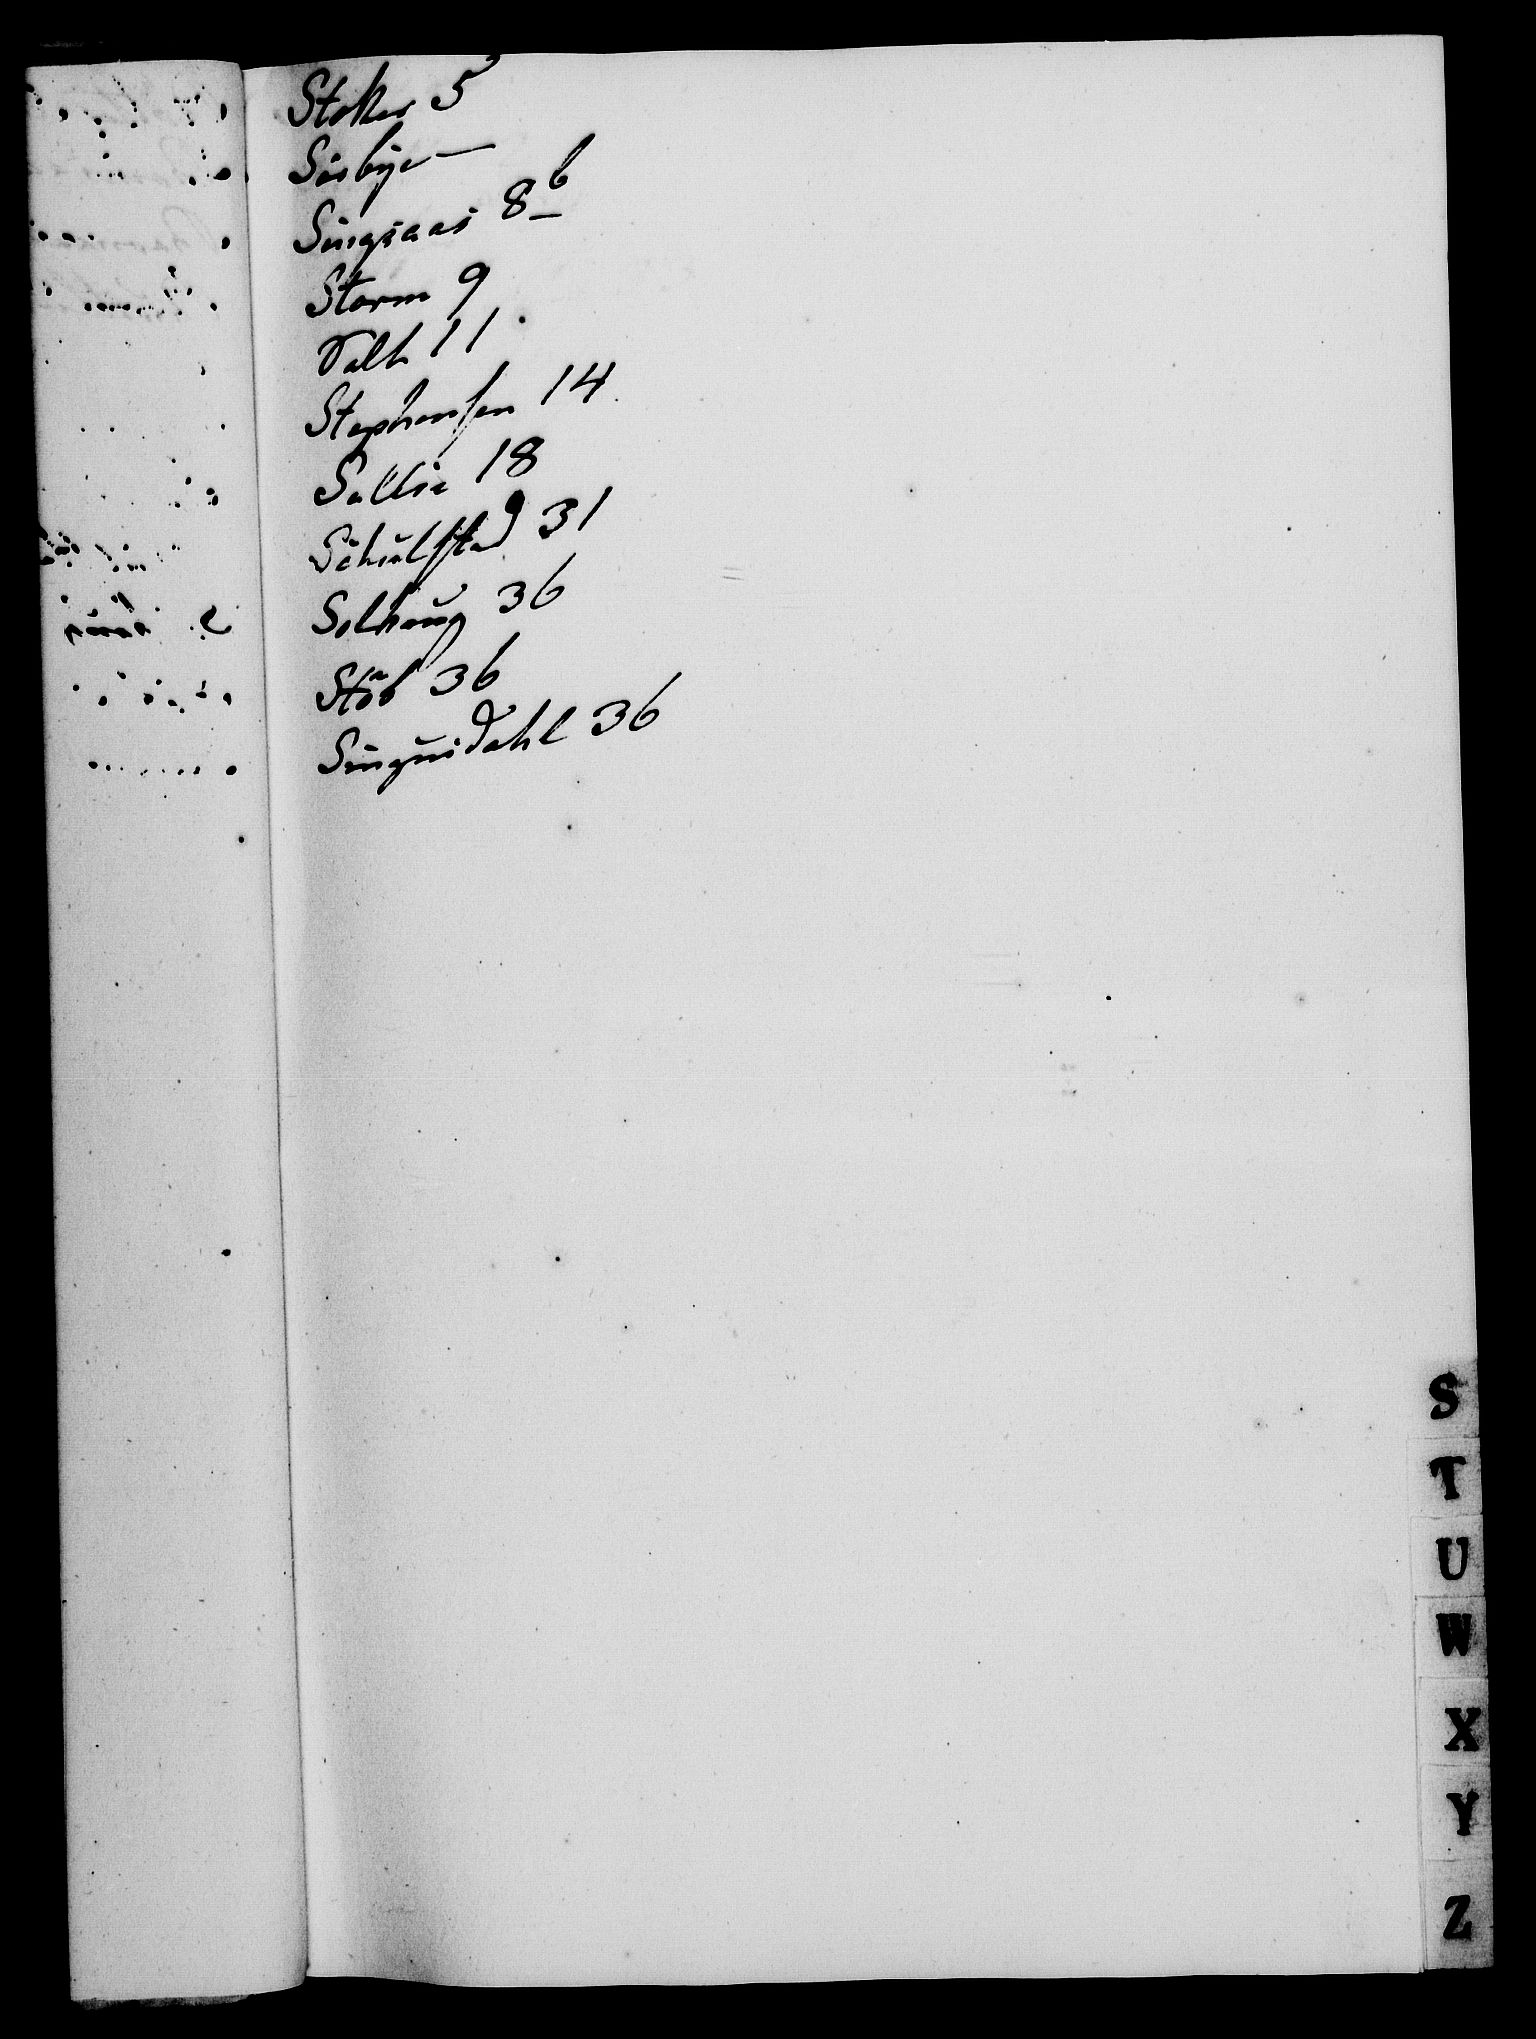 Stoker 5
Sisbye —
Singsaas 8 b
Storm 9
Salt 11
Stephensen 14
Sallie 18
Schulstad 31
Solhaug 36
Stöb 36
Singusdahl 36
S
T
U
W
X
Y
Z